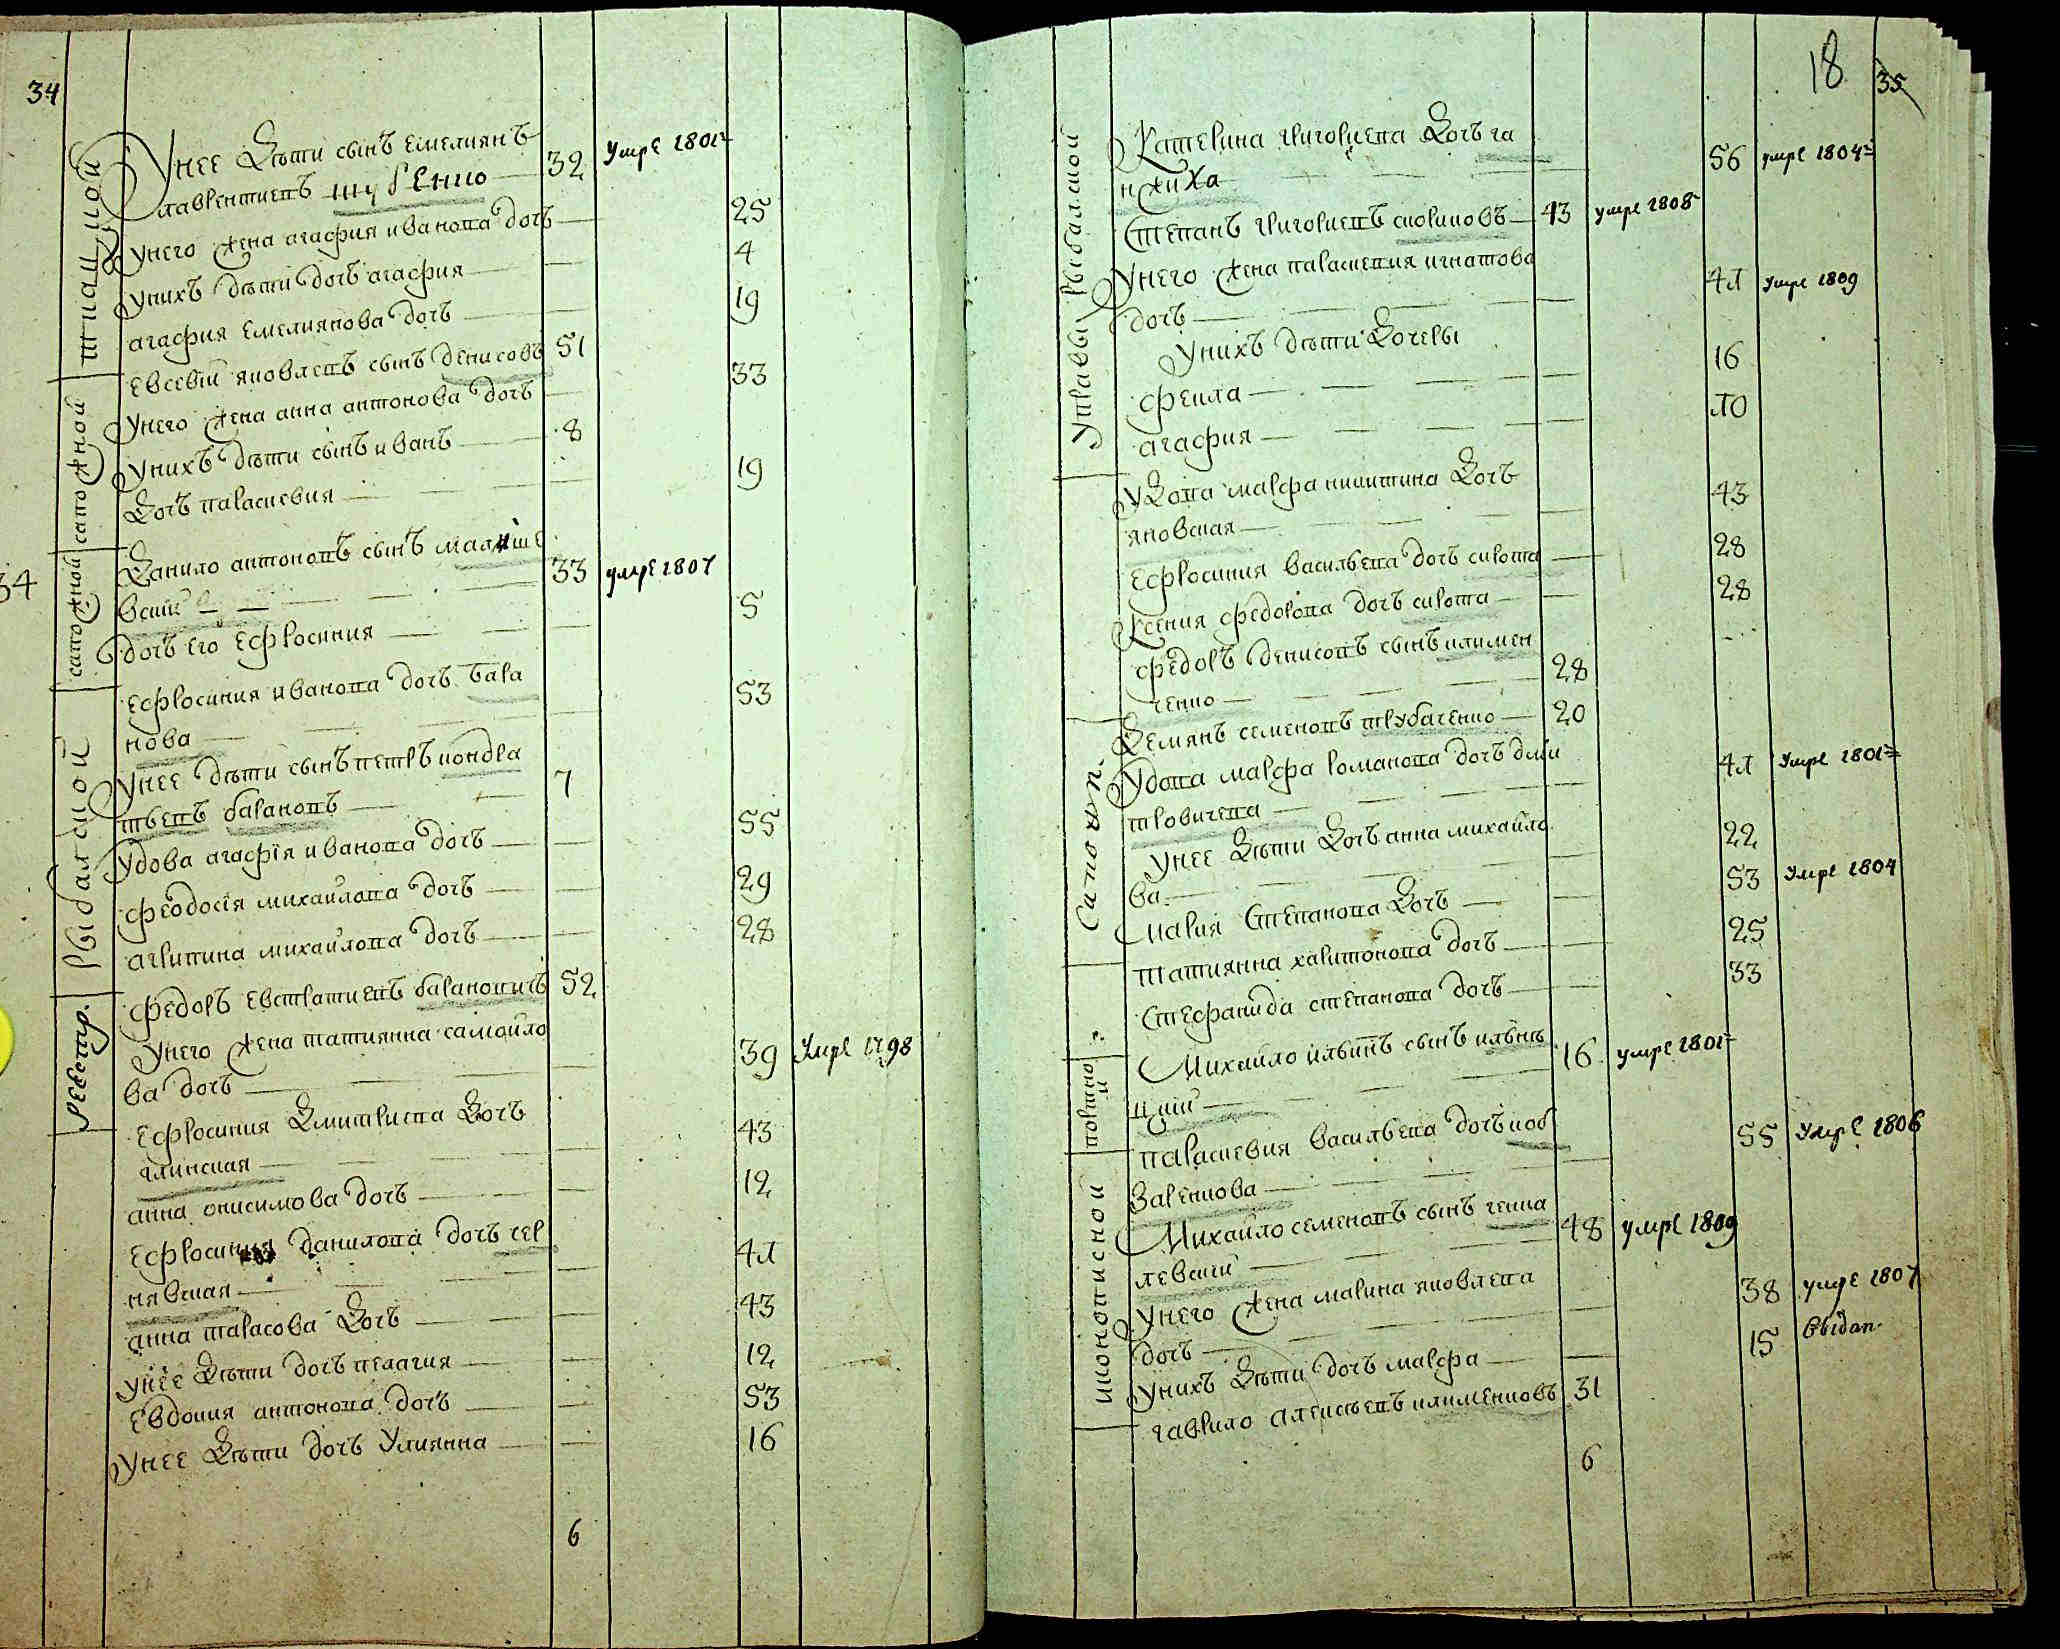 34
ткацкой
Унее дѣти сынъ емелиянъ
лаврентиевъ щуренко 32 умре 1801г
унего жена агафия иванова дочь 25
унихъ дѣти дочь агафия 4
агафия емелиянова дочь 19
сапожной
евсевий яковлевъ сынъ денисовъ 51
унего жена анна антонова дочь 33
унихъ дѣти сынъ иванъ 8
дочь параскевия 19
34
сапожной
данило антоновъ сынъ малише
вский 33 умре 1807
дочь его ефросиния 5
рыбалской
ефросиния иванова дочь бара
нова 53
унее дѣти сынъ петръ кондра
твевъ барановъ 7
удова агафія иванова дочь 55
феодосія михаилова дочь 29
агрипина михаилова дочь 28
реестр.
федоръ евстратиевъ барановичъ 52
унего жена татиянна самоило
ва дочь 39 умре 1798
ефросиния дмитриева дочь
глинская 43
анна онисимова дочь 12
ефросиния данилова дочь чер
нявская 41
анна тарасова дочь 43
унее дѣти дочь пелагия 12
евдокия антонова дочь 53
унее дѣти дочь улиянна 16
6
18 35
управы рыбалской
катерина григориева дочь га
нжиха 56 умре 1804г
степанъ григориевъ скориковъ 43 умре 1808
унего жена параскевия игнатова
дочь 41 умре 1809
унихъ дѣти дочеры
фекла 16
агафия 10
удова марфа никитина дочь
яновская 43
ефросиния васильева дочь сирота 28
ксения федорова дочь сирота 28
федоръ денисовъ сынъ климен
ченко 28
сапожн.
демянъ семеновъ трубаченко 20
удова марфа романова дочь дми
тровичева 41 умре 1801г
унее дѣти дочь анна михаило
ва 22
мария степанова дочь 53 умре 1804
татиянна харитонова дочь 25
стефанида степанова дочь 33
михайло ильинъ сынъ ильни
цкий 16 умре 1801г
параскевия василева дочь коб
заренкова 55 умре 1806
иконописной
михайло семеновъ сынъ
левский 48 умре 1809
унего жена марина яковлева
дочь 38 умре 1807
унихъ дѣти дочь марфа 15 выдан.
гаврило алексѣевъ клименковъ 31
6